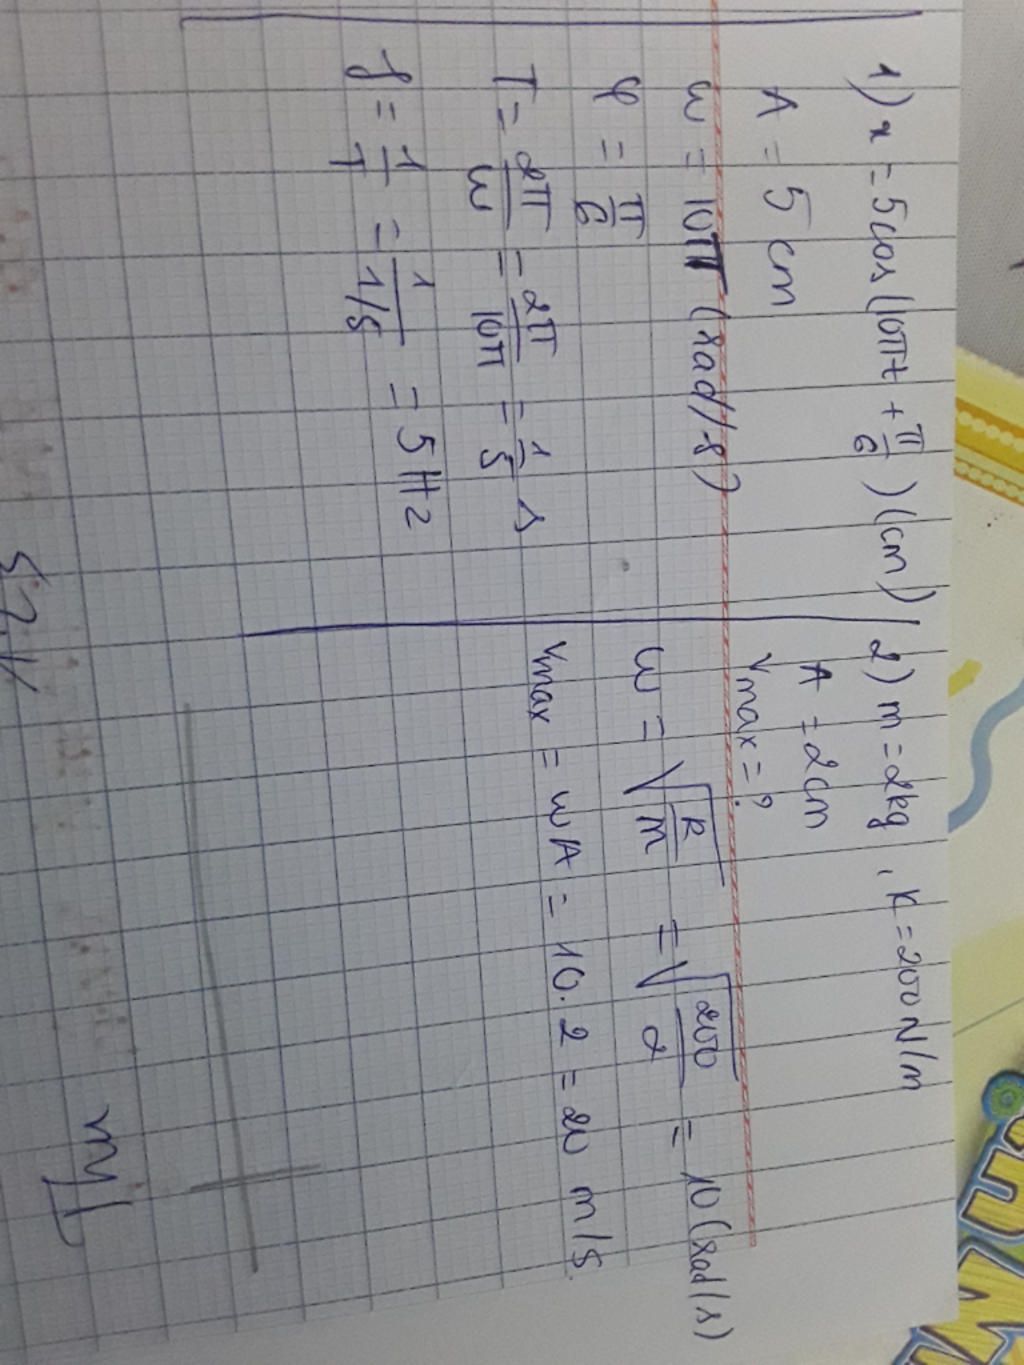 1) x = 5cos(10πt + π/6) (cm)
A = 5 cm
ω = 10π (rad/s)
φ = π/6
T = 2π/ω = 2π/10π = 1/5 s
f = 1/T = 1/1/5 = 5 Hz
2) m = 2kg, k = 200 N/m
A = 2cm
vmax = ?
ω = √k/m = √200/2 = 10 (rad/s)
vmax = ωA = 10.2 = 20 m/s.